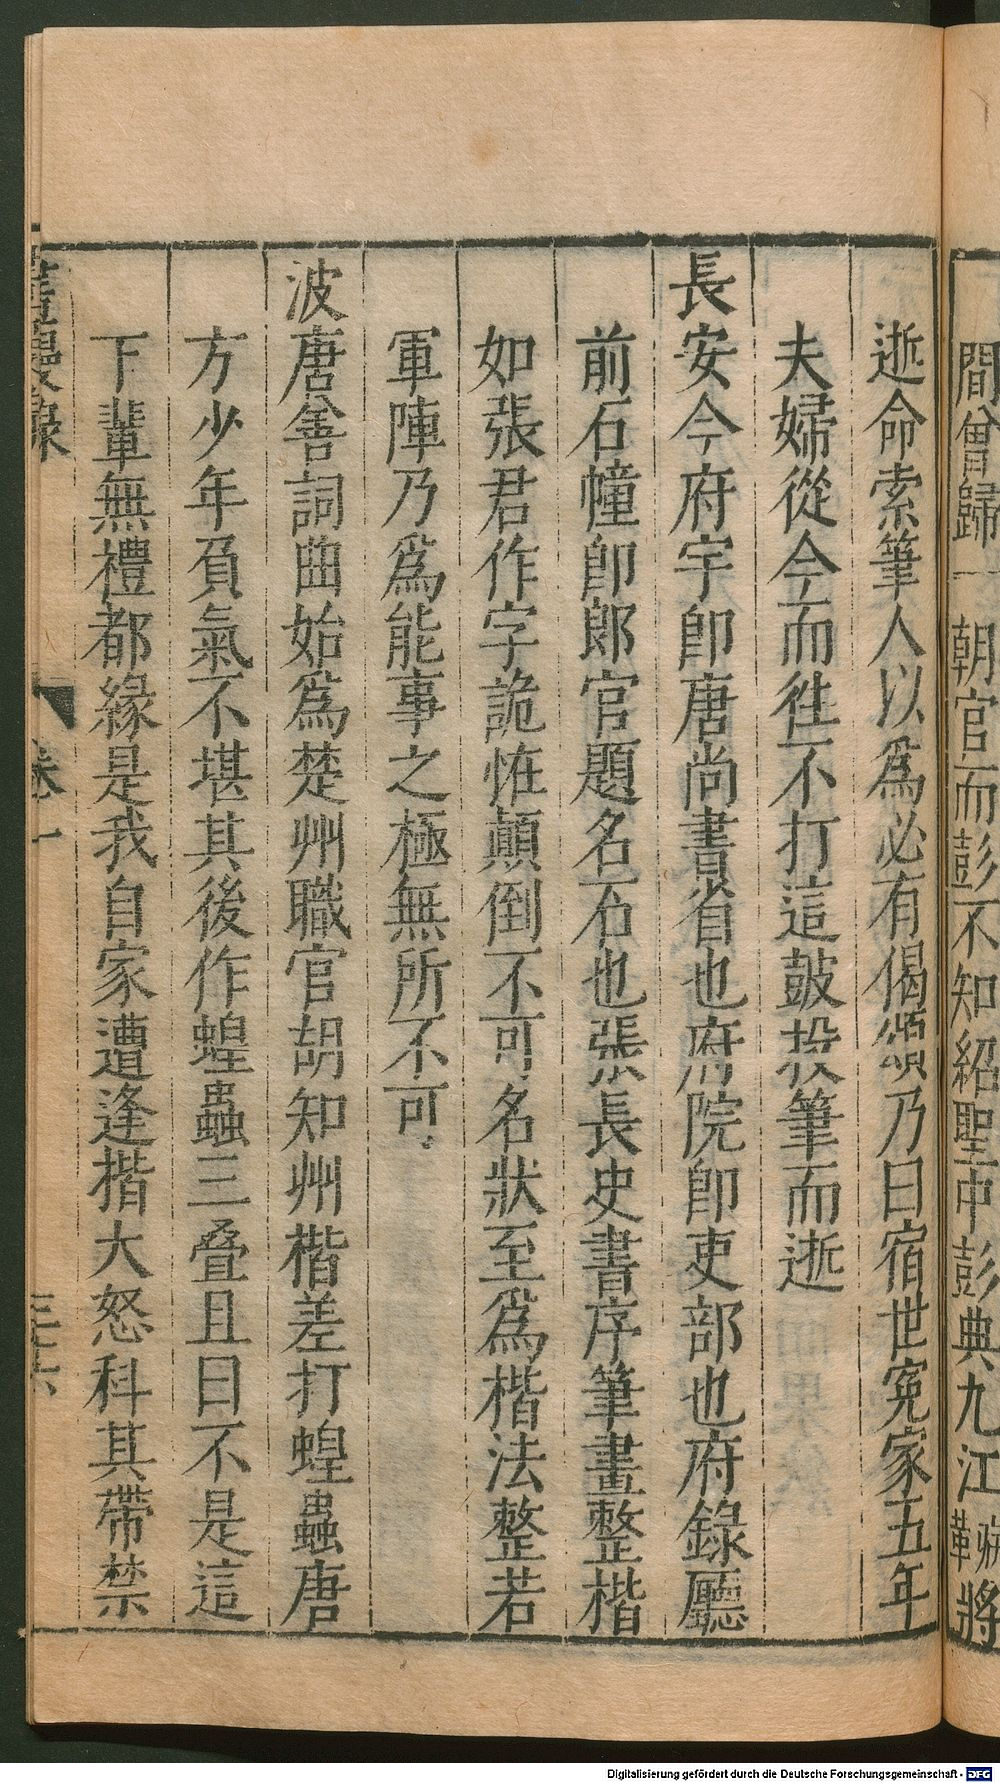 間曾歸一朝官而彭不知紹聖中彭典九江病革將
逝命索筆人以爲必有偈頌乃曰宿世寃家五年
夫婦從今而徃不打這鼓投筆而逝
長安今府宇卽唐尚書省也府院卽吏部也府錄廳
前石幢卽郞官題名石也張長史書序筆畫整楷
如張君作字詭怪顚倒不可名狀至爲楷法整若
軍陣乃爲能事之極無所不可
波唐善詞曲始爲楚州職官胡知州楷差打蝗蟲唐
方少年負氣不堪其後作蝗蟲三疊且曰不是這
下輩無禮都緣是我自家遭逢楷大怒科其帶禁
卷一
Digitalisierung gefördert durch die Deutsche Forschungsgemeinschaft - DFG